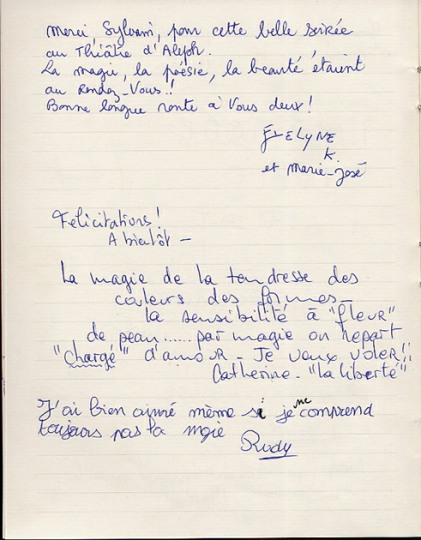 Merci, Sylvain, pour cette belle soirée
au Théâtre d'Aleph.
La magie, la poésie, la beauté étaient
au Rendez-Vous!!
Bonne longue route à Vous deux!
EVELYNE
K.
et Marie-José
Félicitations!
A bientôt -
La magie de la tendresse des
couleurs des formes -
la sensibilité à "fleur"
de peau...... par magie on repart
"chargé" d'amour - Je veux voler!!
Catherine - "la liberté"
J'ai bien aimé même si je ne comprend
toujours pas la mgie
Rudy